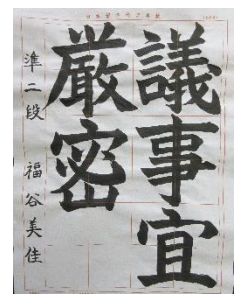 議事宜
厳密
準二段 福谷美佳